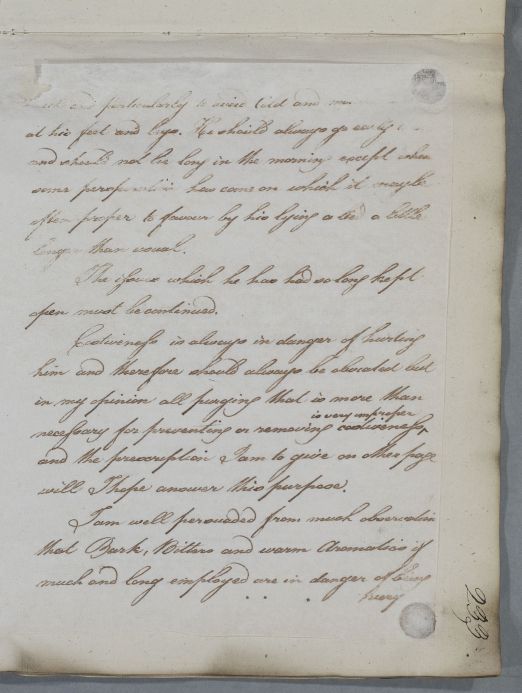 and particularly to avoid Cold and
at his feet and legs. He should always go early
and should not lie long in the morning except when
some perspiration has come on which it maybe
often proper to favour by his lying a bed a little
longer than usual.
The issue which he has had so long kept
open must be continued.
Costiveness is always in danger of hurting
him and therefore should always be obviated but
in my opinion all purging that is more than
is very improper
necessary for preventing or removing costiveness,
and the prescription I am to give on other page
will I hope answer this purpose.
I am well persuaded from much observation
that Bark, Bitters and warm Aromatics if
much and long employed are in danger of being
very